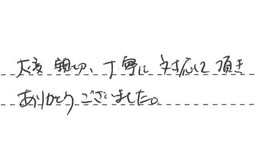 大変親切、丁寧に対応して頂き
ありがとうございました。